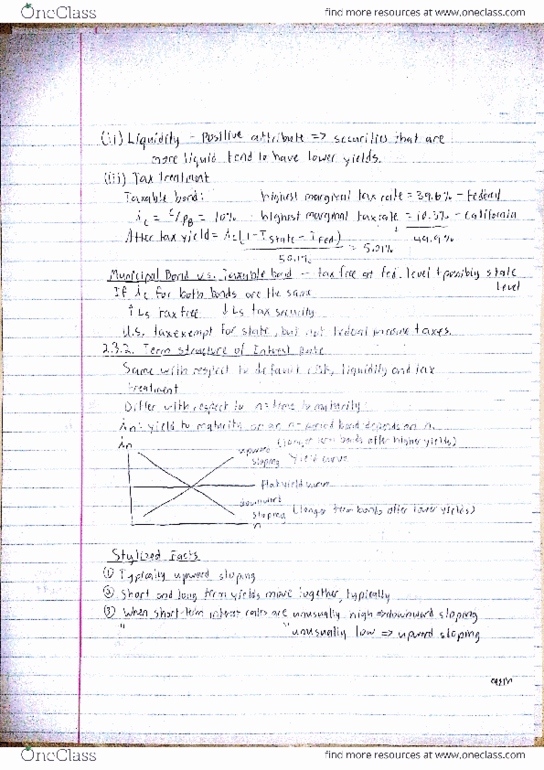 OneClass
find more resources at www.oneclass.com
(ii) Liquidity - Positive attribute => securities that are
more liquid tend to have lower yields.
(iii) Tax treatment
Taxable bond: highest marginal tax rate = 39.6% - Federal
i_c = C/P_B = 10% highest marginal tax rate = 10.3% - California
After tax yield = i_c(1 - T_state - T_fed) = 5.01% 49.9%
50.1%
Municipal Bond v.s. Taxable bond - tax free at fed. level & possibly state
level
If i_c for both bonds are the same
↑ L_s tax free ↓ L_s tax security
U.S. tax exempt for state, but not federal income taxes.
2.3.2. Term structure of Interest Rate
Same with respect to default risk, liquidity and tax
treatment
Differ with respect to n = time to maturity
i_n = yield to maturity on an n-period bond depends on n.
i_n
upward (longer term bonds offer higher yields)
sloping yield curve
flat yield curve
downward
sloping (longer term bonds offer lower yields)
n
Stylized Facts
① Typically upward sloping
② Short and long term yields move together, typically
③ When short-term interest rates are unusually high => downward sloping
" " unusually low => upward sloping
OneClass
find more resources at www.oneclass.com